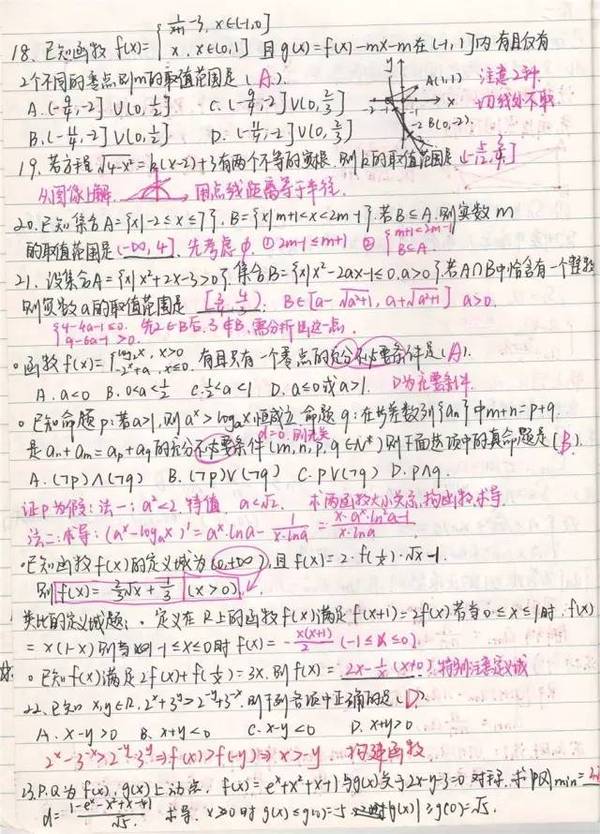 18. 已知函数 f(x)={ 1/(x+1) -3, x∈(-1,0]
x, x∈(0,1] 且 g(x)=f(x)-mx-m在(-1,1]内有且仅有
2个不同的零点则m的取值范围是 (A).
A.(-9/4,-2]∪(0,1/2] C.(-9/4,-2]∪(0,2/3]
B.(-11/4,-2]∪(0,1/2] D.(-11/4,-2]∪(0,2/3]
y A(1,1) x -2 B(0,-2)
注意2种.
切线处不取.
19. 若方程 √(4-x²)=k(x-2)+3有两个不等的实根. 则k的取值范围是 (5/12, 3/4]
从图像上解. 用点线距离等于半径.
20. 已知集合A={x|-2≤x≤7}, B={x|m+1<x<2m-1}.若B⊆A.则实数m
的取值范围是 (-∞,4]. 先考虑φ. ① 2m-1≤m+1 ② { m+1<2m-1
B⊆A.
21. 设集合A={x|x²+2x-3>0}, 集合B={x|x²-2ax-1≤0.a>0}.若A∩B中恰含有一个整数
则实数a的取值范围是 [3/4, 4/3). B∈[a-√(a²+1), a+√(a²+1)] a>0.
{4-4a-1≤0.
9-6a-1>0. 先2∈B后3∉B,需分析出这一点.
。函数f(x)={log₂x, x>0
-2ˣ+a, x≤0. 有且只有一个零点的充分不必要条件是(A).
A. a<0 B. 0<a<1/2 C. 1/2<a<1 D. a≤0或a>1. D为充要条件
。已知命题p:若a>1,则aˣ>logₐx恒成立.命题q:在等差数列{aₙ}中m+n=p+q
是aₙ+aₘ=aₚ+a_q的充分不必要条件(m,n,p,q∈N*)则下面选项中的真命题是(B).
d=0.
A.(¬p)∧(¬q) B.(¬p)∨(¬q) C. p∨(¬q) D. p∧q.
证P为假: 法一: a²<2 特值 a<√2. 求两函数大小关系,构函数求导.
法二:求导:(aˣ-logₐx)'=aˣ·lna-1/(x·lna)=(x·aˣ·ln²a-1)/(x·lna)
·已知函数f(x)的定义域为(0,+∞),且f(x)=2·f(1/x)·√x-1.
则 f(x)=2/3√x+1/3 (x>0).
类比的定义域题: ·定义在R上的函数f(x)满足f(x+1)=2f(x)若当0≤x≤1时.f(x)
=x(1-x)则当-1≤x≤0时f(x)= -x(x+1)/2 (-1≤x≤0).
。已知f(x)满足2f(x)+f(1/x)=3x.则f(x)= 2x-1/x (x≠0). 特别注意定义域
22. 已知x,y∈R, 2ˣ+3ʸ>2⁻ʸ+3⁻ˣ.则下列各项中正确的是(D)
A. x-y>0 B. x+y<0 C. x-y<0 D. x+y>0
2ˣ-3⁻ˣ>2⁻ʸ-3ʸ⇒f(x)>f(-y)⇒x>-y. 构建函数
23.P.Q为f(x),g(x)上动点. f(x)=eˣ+x²+x+1与g(x)关于2x-y-3=0对称.求|PQ|min=
d= /√5. 求导. x≥0时